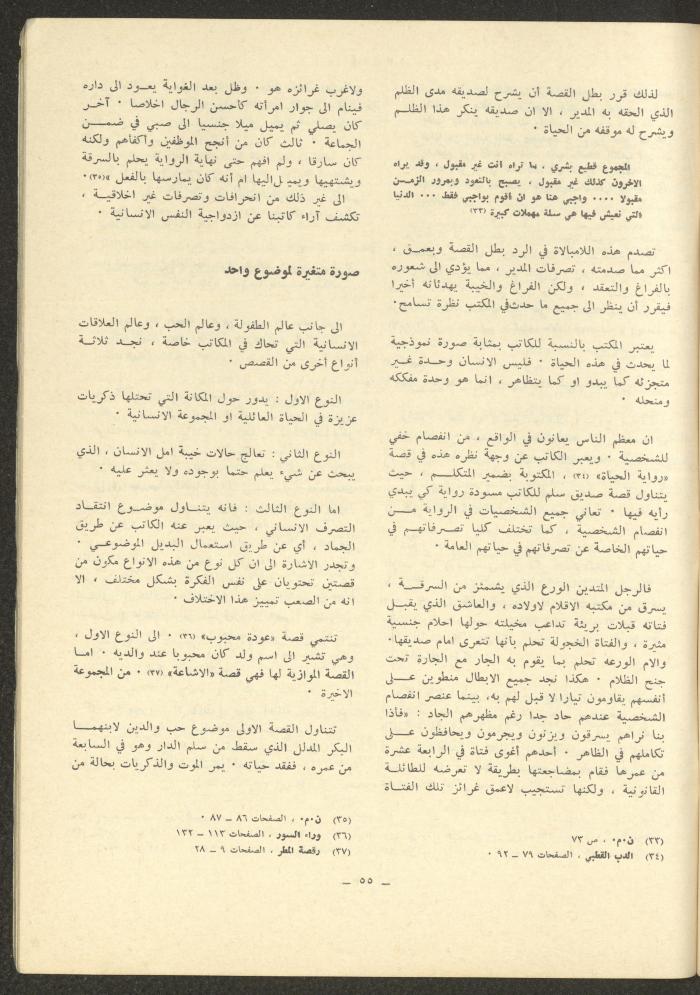 لذلك قرر بطل القصة أن يشرح لصديقه مدى الظلم
الذي الحقه به المدير ، الا ان صديقه ينكر هذا الظلــم
ويشرح له موقفه من الحياة ٠
المجموع قطيع بشري ، ما تراه انت غير مقبول ، وقد يراه
الاخرون كذلك غير مقبول ، يصبح بالتعود وبمرور الزمــن
مقبولا ٠٠٠٠ واجبي هنا هو ان اقوم بواجبي فقط ٠٠٠ الدنيا
التي نعيش فيها هي سلة مهملات كبيرة (٣٣)
تصدم هذه اللامبالاة في الرد بطل القصة وبعمــق ،
اكثر مما صدمته ، تصرفات المدير ، مما يؤدي الى شعوره
بالفراغ والتعقد ، ولكن الفراغ والخيبة يهدئانه أخيرا
فيقرر أن ينظر الى جميع ما حدث في المكتب نظرة تسامح٠
يعتبر المكتب بالنسبة للكاتب بمثابة صورة نموذجية
لما يحدث في هذه الحياة ٠ فليس الانسان وحــدة غــير
متجزئه كما يبدو او كما يتظاهر ، انما هو وحدة مفككه
ومنحله ٠
ان معظم الناس يعانون في الواقع ، من انفصام خفي
للشخصية ٠ ويعبر الكاتب عن وجهة نظره هذه في قصة
«رواية الحياة» (٣٤) ، المكتوبة بضمير المتكلــم ، حيث
يتناول قصة صديق سلم للكاتب مسودة رواية كي يبدي
رأيه فيها ٠ تعاني جميع الشخصيات في الرواية مــن
انفصام الشخصية ، كما تختلف كليا تصــرفاتهــم في
حياتهم الخاصة عن تصرفاتهم في حياتهم العامة ٠
فالرجل المتدين الورع الذي يشمئز من السرقــة ،
يسرق من مكتبه الاقلام لاولاده ، والعاشق الذي يقبــل
فتاته قبلات بريئة تداعب مخيلته حولها احلام جنسية
مثيرة ، والفتاة الخجولة تحلم بأنها تتعرى امام صديقها٠
والام الورعه تحلم بما يقوم به الجار مع الجارة تحت
جنح الظلام ٠ هكذا نجد جميع الابطال منطوين عــلى
أنفسهم يقاومون تيارا لا قبل لهم به، بينما عنصر انفصام
الشخصية عندهم حاد جدا رغم مظهرهم الجاد : «فأذا
بنا نراهم يسرقون ويزنون ويجرمون ويحافظون عــلى
تكاملهم في الظاهر ٠ أحدهم أغوى فتاة في الرابعة عشرة
من عمرها فقام بمضاجعتها بطريقة لا تعرضه للطائلــة
القانونية ، ولكنها تستجيب لاعمق غرائز تلك الفتــاة
(٣٣) ن٠م٠ ، ص ٧٣
(٣٤) الدب القطبي ، الصفحات ٧٩ – ٩٢ ٠
ولاغرب غرائزه هو ٠ وظل بعد الغواية يعــود الى داره
فينام الى جوار امرأته كأحسن الرجال اخلاصا ٠ آخــر
كان يصلي ثم يميل ميلا جنسيا الى صبي في ضمــــن
الجماعة ٠ ثالث كان من أنجح الموظفين وأكفأهم ولكنه
كان سارقا ، ولم افهم حتى نهاية الرواية يحلم بالسرقة
ويشتهيها ويميل اليها ام أنه كان يمارسها بالفعل »(٣٥)٠
الى غير ذلك من انحرافات وتصرفات غير اخلاقيــة ،
تكشف آراء كاتبنا عن ازدواجية النفس الانسانية ٠
صورة متغيرة لموضوع واحد
الى جانب عالم الطفولة ، وعالم الحب ، وعالم العلاقات
الانسانية التي تحاك في المكاتب خاصة ، نجــد ثلاثــة
أنواع أخرى من القصص ٠
النوع الاول : يدور حول المكانة التي تحتلها ذكريات
عزيزة في الحياة العائلية او المجموعة الانسانية ٠
النوع الثاني : تعالج حالات خيبة امل الانسان ، الذي
يبحث عن شيء يعلم حتما بوجوده ولا يعثر عليه ٠
اما النوع الثالث : فانه يتنــاول موضــوع انتقــاد
التصرف الانساني ، حيث يعبر عنه الكاتب عن طريق
الجماد ، أي عن طريق استعمال البديل الموضوعــي ٠
وتجدر الاشارة الى ان كل نوع من هذه الانواع مكون من
قصتين تحتويان على نفس الفكرة بشكل مختلف ، الا
انه من الصعب تمييز هذا الاختلاف ٠
تنتمي قصة «عودة محبوب» (٣٦) ٠ الى النوع الاول ،
وهي تشير الى اسم ولد كان محبوبا عند والديه ٠ امــا
القصة الموازية لها فهي قصة «الاشاعة» (٣٧) ٠ من المجموعة
الاخيرة ٠
تتناول القصة الاولى موضوع حب والدين لابنهمــــا
البكر المدلل الذي سقط من سلم الدار وهو في السابعة
من عمره ، ففقد حياته ٠ يمر الموت والذكريات بحالة من
(٣٥) ن٠م٠ ، الصفحات ٨٦ – ٨٧ ٠
(٣٦) وراء السور ، الصفحات ١١٣ – ١٣٢
(٣٧) رقصة المطر ، الصفحات ٩ – ٢٨
– ٥٥ –